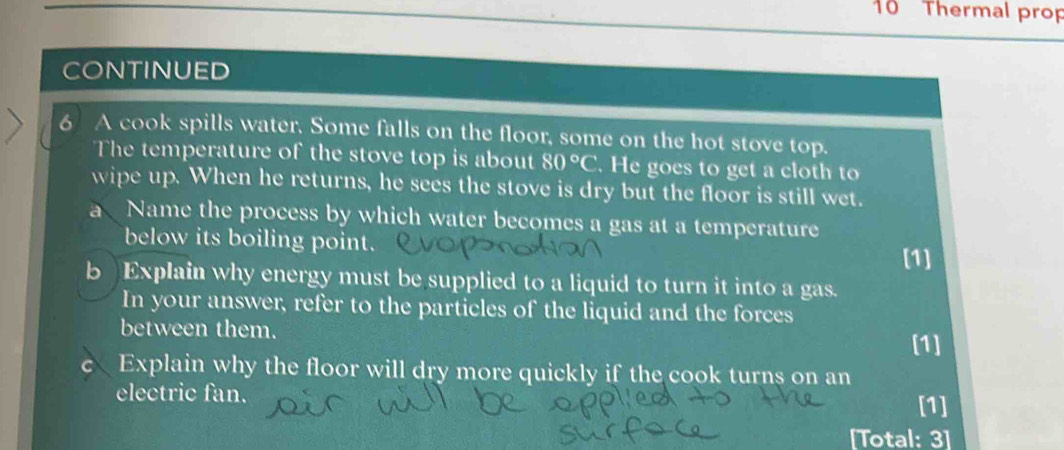 10 Thermal prop
CONTINUED
6 A cook spills water. Some falls on the floor, some on the hot stove top.
The temperature of the stove top is about 80 °C. He goes to get a cloth to
wipe up. When he returns, he sees the stove is dry but the floor is still wet.
a Name the process by which water becomes a gas at a temperature
below its boiling point. evaporation
[1]
b Explain why energy must be supplied to a liquid to turn it into a gas.
In your answer, refer to the particles of the liquid and the forces
between them.
[1]
c Explain why the floor will dry more quickly if the cook turns on an
electric fan. air will be applied to the
[1]
surface
[Total: 3]